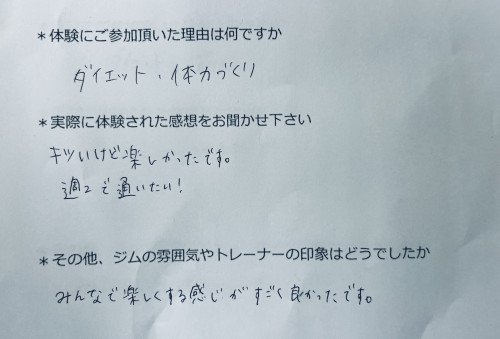 *体験にご参加頂いた理由は何ですか
ダイエット・体力づくり
*実際に体験された感想をお聞かせ下さい
キツいけど楽しかったです。
週2で通いたい!
*その他、ジムの雰囲気やトレーナーの印象はどうでしたか
みんなで楽しくする感じがすごく良かったです。